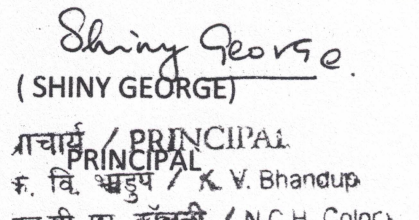 Shiny George.
( SHINY GEORGE)
प्राचार्य / PRINCIPAL
PRINCIPAL
के. वि. भाण्डुप / K. V. Bhandup
कॉलोनी / N.C.H. Colony